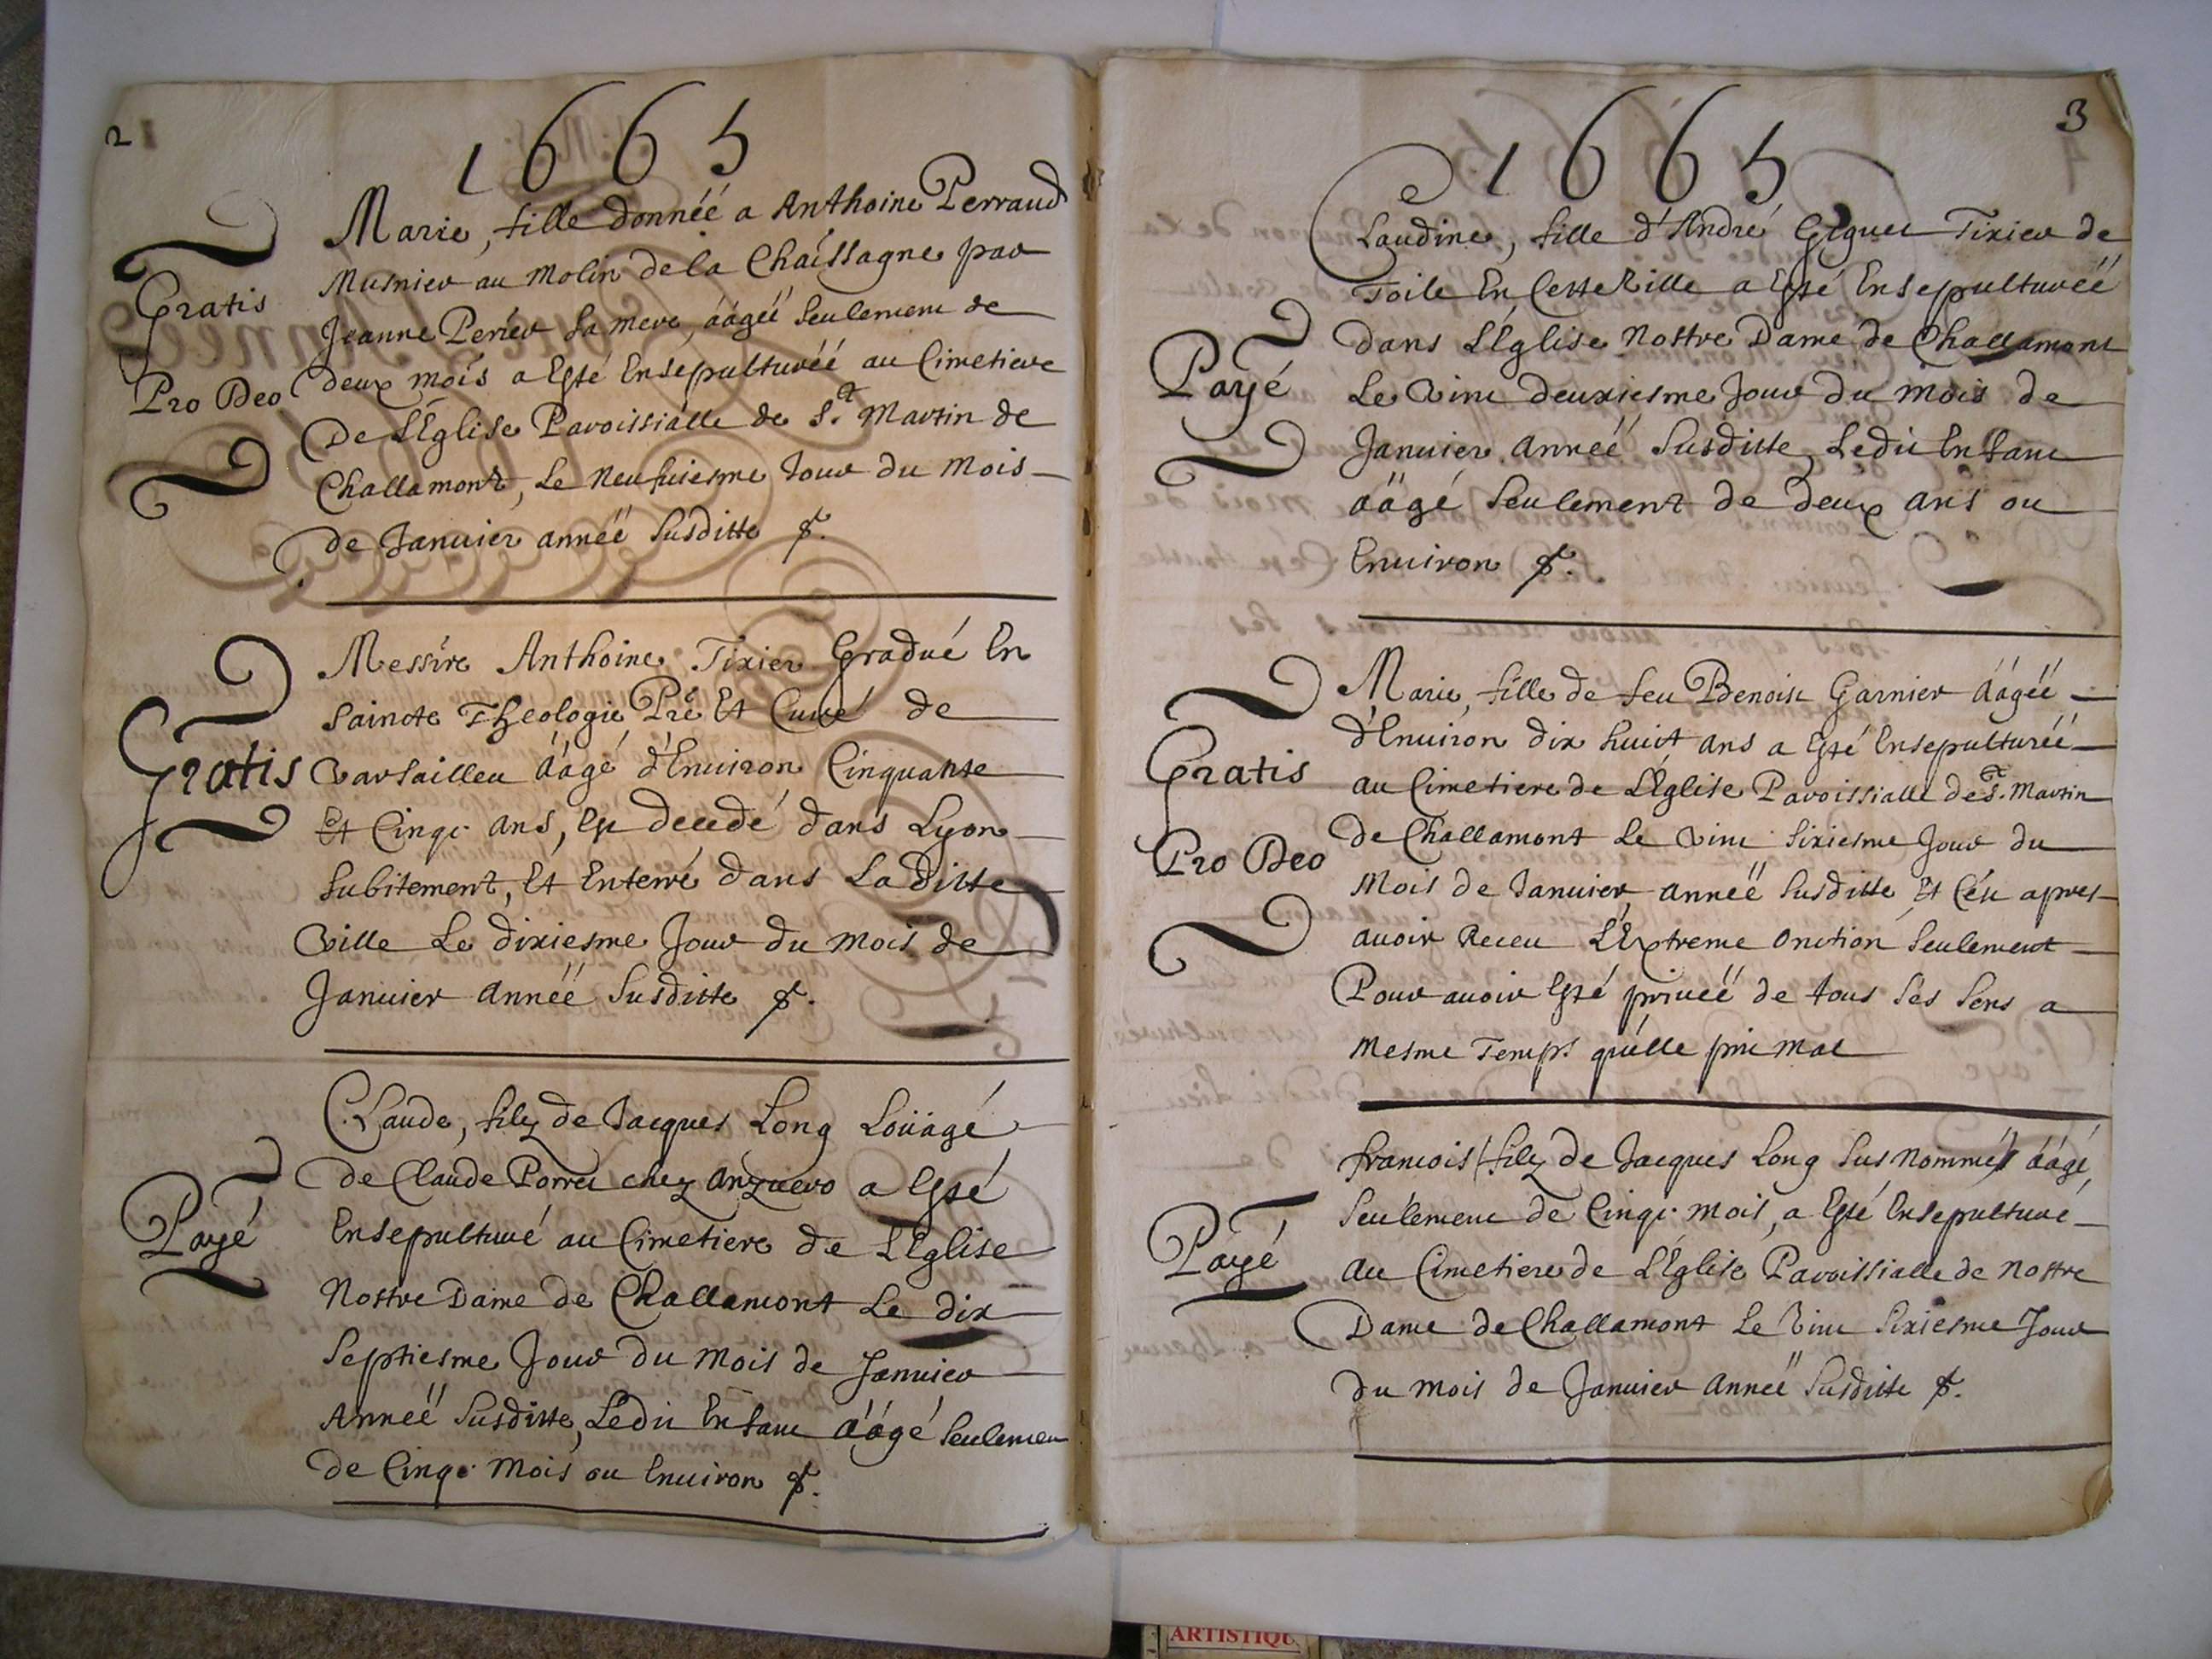 2
1665
Marie, fille donnéé a Anthoine Perraud
Musnier au Molin de la Chaissagne par
Jeanne Perier sa mere, áágéé seulement de
Gratis
deux mois a Esté Ensepulturéé au Cimetiere
Pro Deo
De L'Eglise Paroissialle de St. Martin de
Challamont, Le Neufuiesme Jour du Mois
de Januier annéé susditte
Messire Anthoine Tixier Gradué En
saincte Theologie Pré Et Curé de
Gratis
Varsailleu áágé d'Enuiron Cinquante
Et Cinqc ans, Est decedé dans Lyon
subitement, Et Enterré dans La ditte
Ville Le dixiesme Jour du Mois de
Januier Annéé susditte
Claude, filz de Jacques Long Loüagé
de Claude Porret chez Anzuero a Esté
Payé
Ensepulturé au Cimetiere de L'Eglise
Nostre Dame de Challamont Le dix
septiesme Jour du Mois de Januier
Annéé susditte, Ledit Enfant áágé seulement
de Cinqc Mois ou Enuiron
3
1665
Claudine, fille d'André Giguet Tixier de
Toile En Cette Ville a Esté Ensepulturéé
Payé
dans L'Eglise Nostre Dame de Challamont
Le Vint deuxiesme Jour du Mois de
Januier Annéé susditte, Ledit Enfant
áágé seulement de deux ans ou
Enuiron
Marie, fille de feu Benoist Garnier áágéé
d'Enuiron dix huict ans a Esté Ensepulturéé
Gratis
au Cimetiere de L'Eglise Paroissialle de St. Martin
Pro Deo
de Challamont Le Vint sixiesme Jour du
Mois de Januier, annéé susditte Et C'ést apres
auoir Receu L'Extreme Onction seulement
Pour auoir Esté priuéé de tous ses sens a
mesme Temps qu'elle prit mal
francois (filz de Jacques Long susnommé) áágé
seulement de Cinqc mois, a Esté Ensepulturé
Payé
Au Cimetiere de L'Eglise Paroissialle de Nostre
Dame de Challamont Le Vint sixiesme Jour
du mois de Januier Annéé susditte
ARTISTIQU